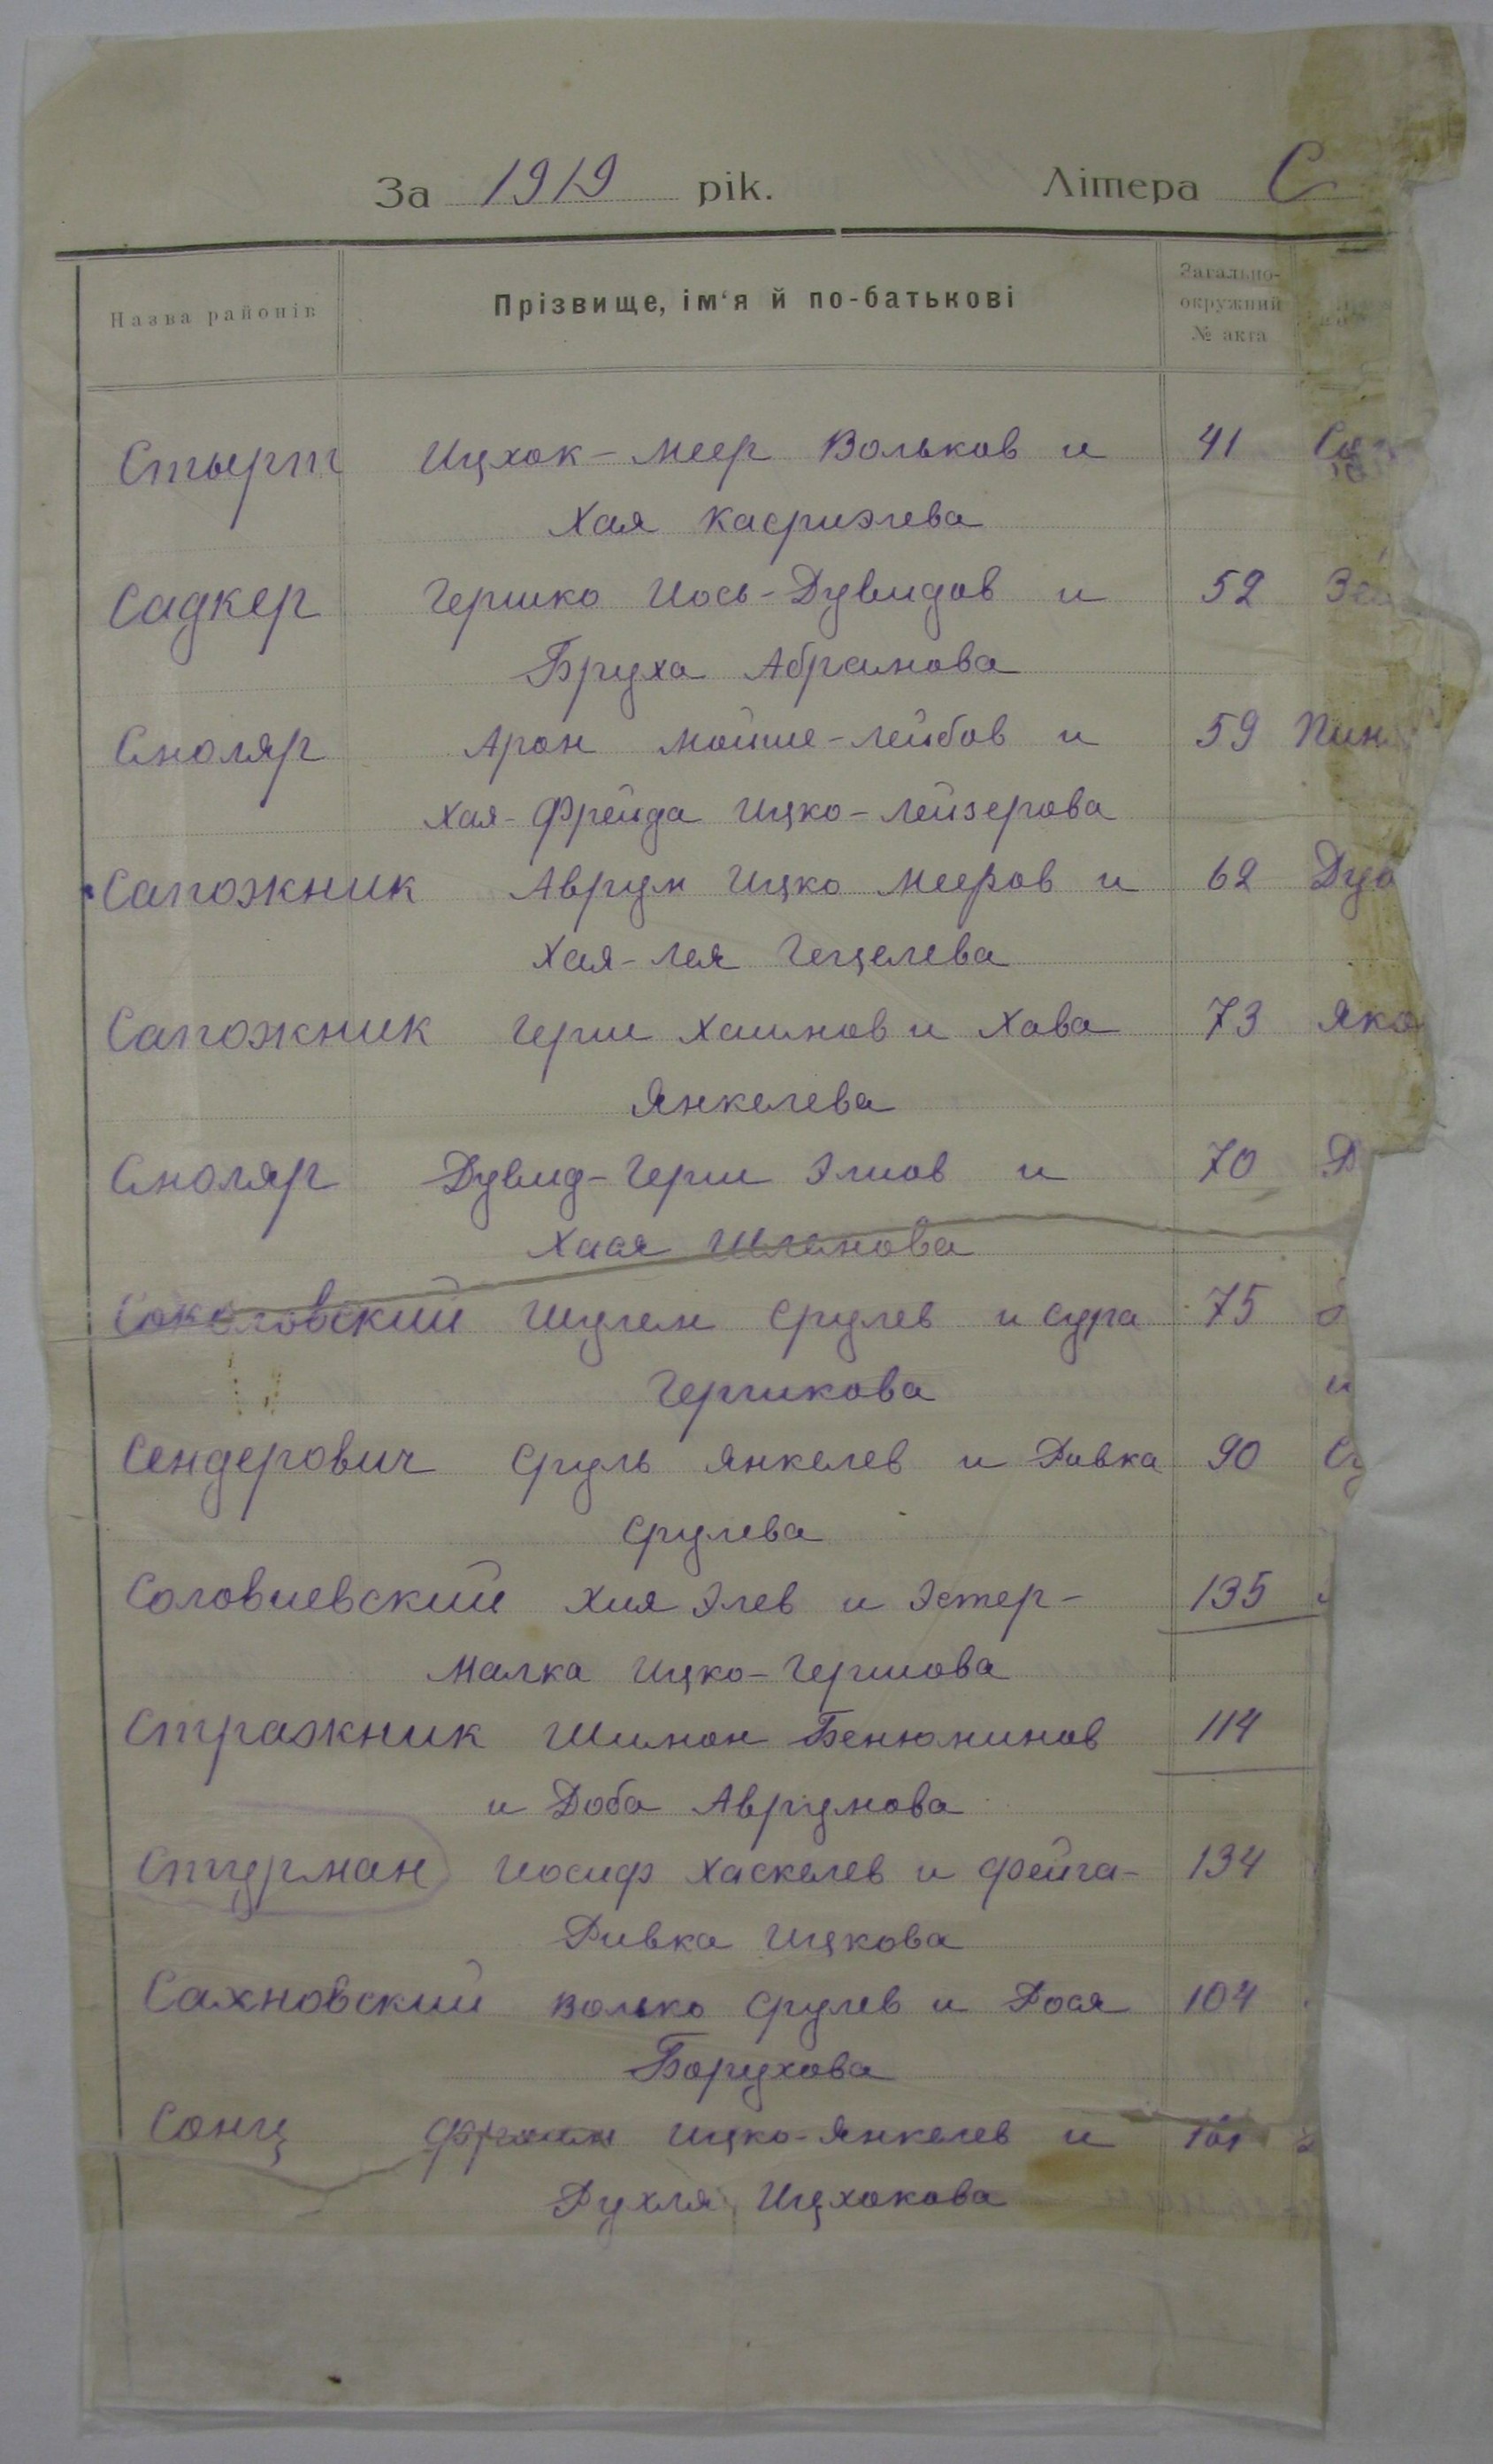 За 1919 рік. Літера С
Назва районів
Прізвище, ім'я й по-батькові
Загально-
окружний
№ акта
Стырт Ицхок-Меер Вольков и 41
Хая Касриэлева
Садкер Гершко Иось-Дувидов и 52
Бруха Абрамова
Смоляр Арон Мойше-Лейбов и 59 Пин
Хая-Фрейда Ицко-Лейзерова
Сапожник Аврум Ицко Мееров и 62 Дув
Хая-Лея Гецелева
Сапожник Герш Хаимов и Хава 73 Яко
Янкелева
Смоляр Дувид-Герш Элиов и 70
Хася
Соколовский Шулем Срулев и Сура 75
Гершкова и
Сендерович Сруль Янкелев и Ривка 90
Срулева
Соловиевский Хия Элев и Эстер- 135
Малка Ицко-Гершова
Стражник Шимон Бенюминов 114
и Доба Аврумова
Стурман Иосиф Хаскелев и Фейга- 134
Ривка Ицкова
Сахновский Волько Срулев и Рося 104
Борухова
Сонц Ицко-Янкелев и 101
Рухля Ицхокова